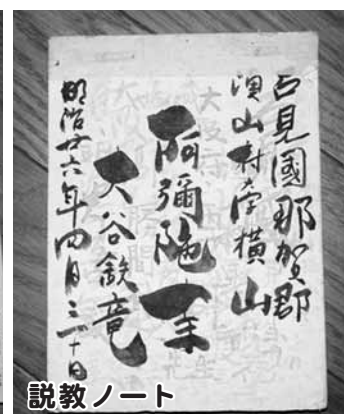 石見國那賀郡
濱山村字横山
阿彌陀寺
大谷敘竜
明治廿六年四月三十日
説教ノート